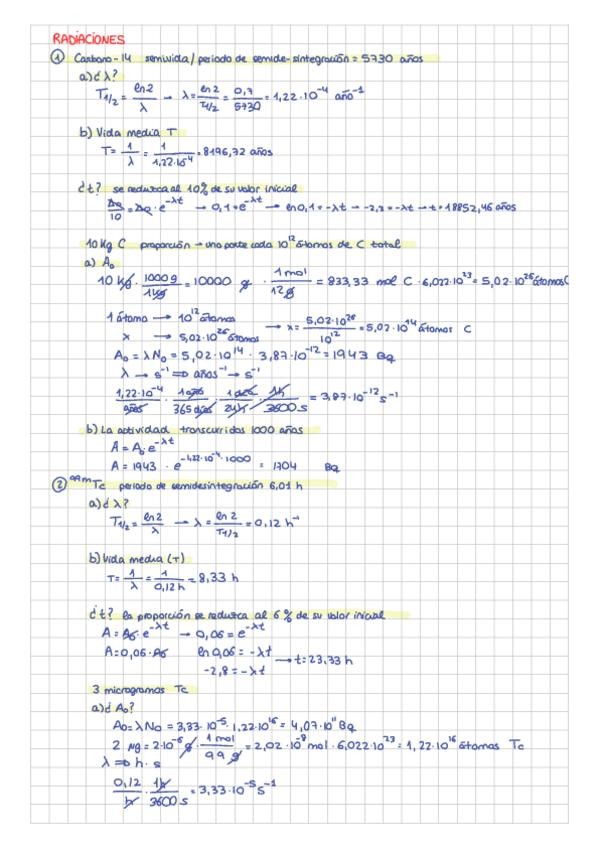 RADIACIONES
① Carbono-14 semivida/periodo de semide-sintegración = 5730 años
a) ¿λ?
T1/2 = ln2/λ → λ = ln2/T1/2 = 0,7/5730 = 1,22·10⁻⁴ año⁻¹
b) Vida media T
T = 1/λ = 1/1,22·10⁻⁴ = 8196,72 años
¿t? se reduzca al 10% de su valor inicial
A0/10 = A0·e^-λt → 0,1 = e^-λt → ln0,1 = -λt → -2,3 = -λt → t = 18852,46 años
10 Kg C proporción → una parte cada 10¹² átomos de C total
a) A₀
10 Kg · 1000g/1Kg = 10000 g · 1mol/12g = 833,33 mol C · 6,022·10²³ = 5,02·10²⁶ átomos C
1 átomo → 10¹² átomos
x → 5,02·10²⁶ átomos → x = 5,02·10²⁶/10¹² = 5,02·10¹⁴ átomos C
A₀ = λN₀ = 5,02·10¹⁴ · 3,87·10⁻¹² = 1943 Bq
λ → s⁻¹ ⇒ años⁻¹ → s⁻¹
1,22·10⁻⁴/años · 1año/365 días · 1día/24h · 1h/3600s = 3,87·10⁻¹² s⁻¹
b) La actividad transcurridos 1000 años
A = A₀·e^-λt
A = 1943 · e^-1,22·10⁻⁴·1000 = 1704 Bq
② 99mTc periodo de semidesintegración 6,01 h
a) ¿λ?
T1/2 = ln2/λ → λ = ln2/T1/2 = 0,12 h⁻¹
b) Vida media (T)
T = 1/λ = 1/0,12h = 8,33 h
¿t? la proporción se reduzca al 6% de su valor inicial
A = A0·e^-λt → 0,06 = e^-λt
A = 0,06·A0 ln0,06 = -λt → t = 23,33 h
-2,8 = -λt
3 microgramos Tc
a) ¿A₀?
A₀ = λN₀ = 3,33·10⁻⁵·1,22·10¹⁶ = 4,07·10¹¹ Bq
2 μg = 2·10⁻⁶ g · 1mol/99g = 2,02·10⁻⁸ mol · 6,022·10²³ = 1,22·10¹⁶ átomos Tc
λ ⇒ h · s
0,12/h · 1h/3600s = 3,33·10⁻⁵ s⁻¹